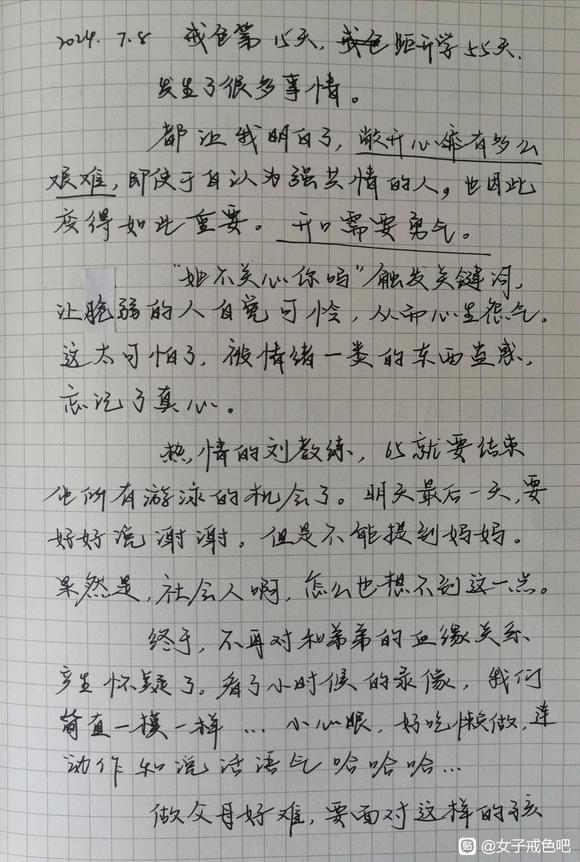 2024.7.8 戒色第15天,戒色距开学55天.
发生了很多事情。
都让我明白了,敞开心扉有多么
艰难,即使于自认为强共情的人,也因此
变得如此重要。开口需要勇气。
“她不关心你吗”触发关键词,
让脆弱的人自觉可怜,从而心生怨气。
这太可怕了,被情绪一类的东西蛊惑,
忘记了真心。
热情的刘教练,65就要结束
他所有游泳的机会了。明天最后一天,要
好好说谢谢。但是不能提到妈妈。
果然是,社会人啊,怎么也想不到这一点。
终于,不再对和弟弟的血缘关系
产生怀疑了。看了小时候的录像,我们
简直一模一样...小心眼,好吃懒做,连
动作和说话语气哈哈哈...
做父母好难,要面对这样的孩
贴 @女子戒色吧